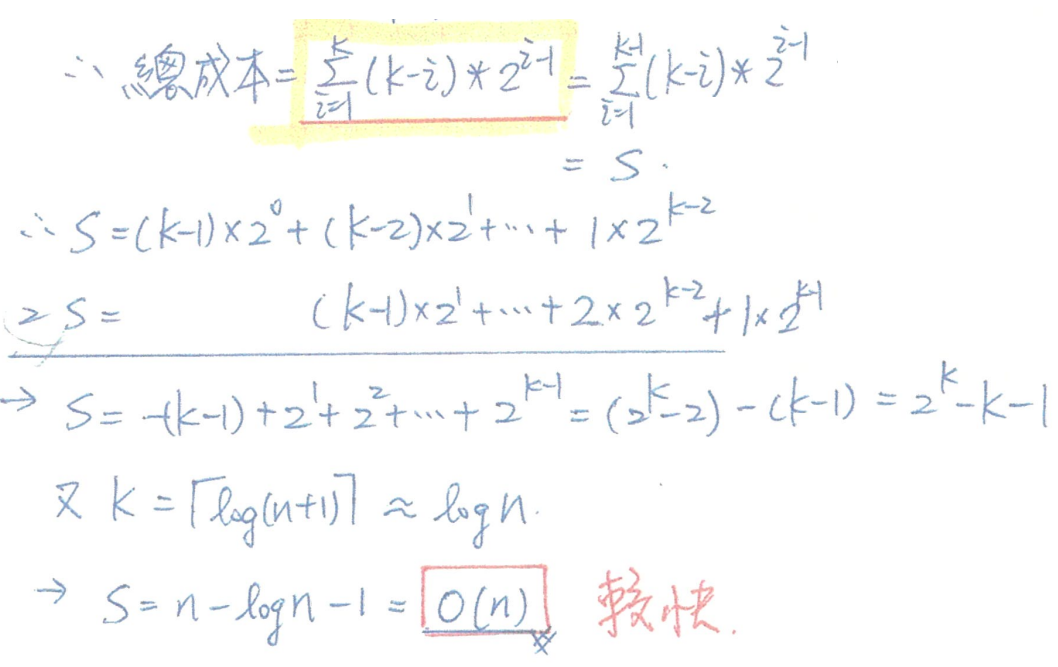 ∴ 總成本 = \sum_{i=1}^{k} (k-i) * 2^{i-1} = \sum_{i=1}^{k-1} (k-i) * 2^{i-1}
= S.
∴ S = (k-1)×2^0 + (k-2)×2^1 + ⋯ + 1×2^{k-2}
2S = (k-1)×2^1 + ⋯ + 2×2^{k-2} + 1×2^{k-1}
→ S = -(k-1) + 2^1 + 2^2 + ⋯ + 2^{k-1} = (2^k - 2) - (k-1) = 2^k - k - 1
又 k = ⌈log(n+1)⌉ ≈ log n.
→ S = n - log n - 1 = O(n) 較快.